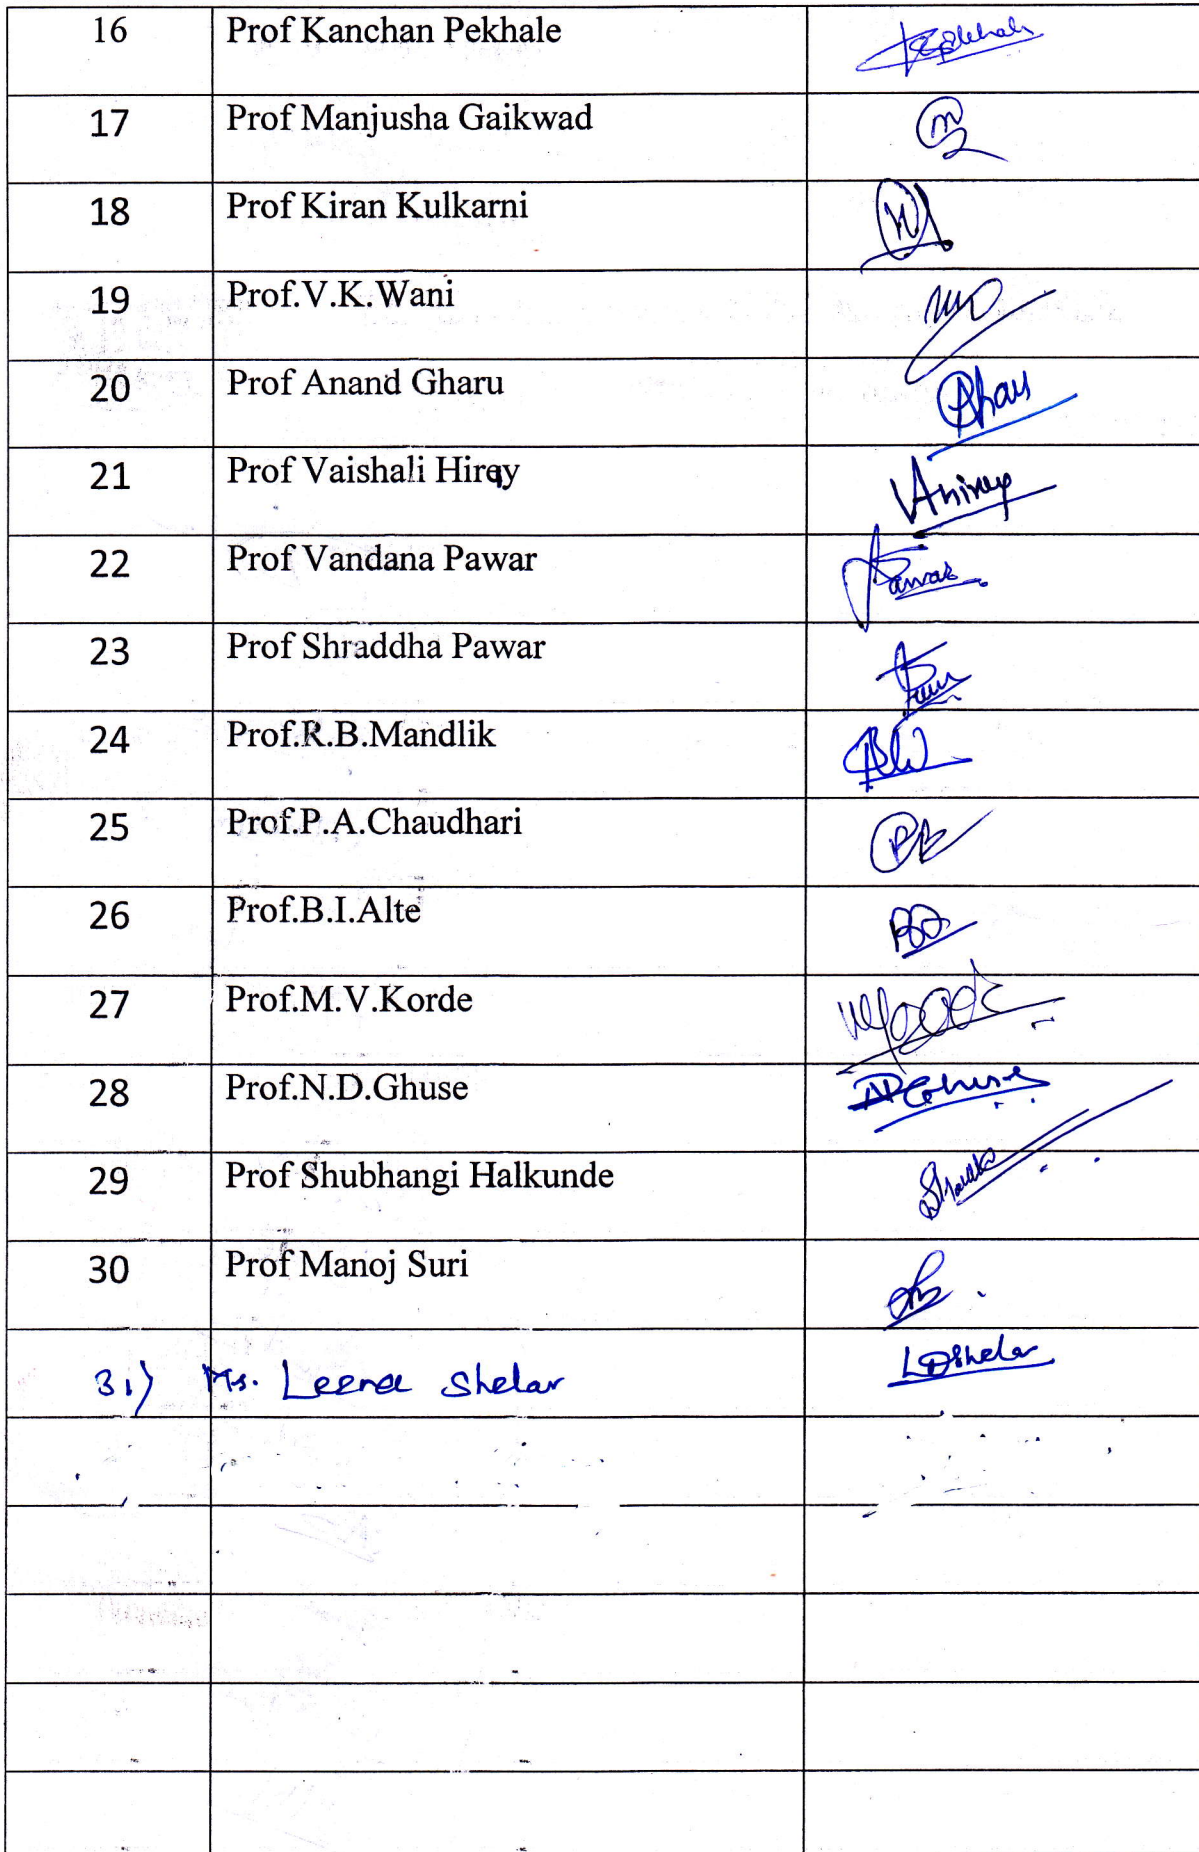 16 Prof Kanchan Pekhale
17 Prof Manjusha Gaikwad
18 Prof Kiran Kulkarni
19 Prof.V.K.Wani
20 Prof Anand Gharu
21 Prof Vaishali Hiray
22 Prof Vandana Pawar Pawar
23 Prof Shraddha Pawar
24 Prof.R.B.Mandlik
25 Prof.P.A.Chaudhari
26 Prof.B.I.Alte
27 Prof.M.V.Korde
28 Prof.N.D.Ghuse NDGhuse
29 Prof Shubhangi Halkunde
30 Prof Manoj Suri
31) Ms. Leena Shelar LDShelar